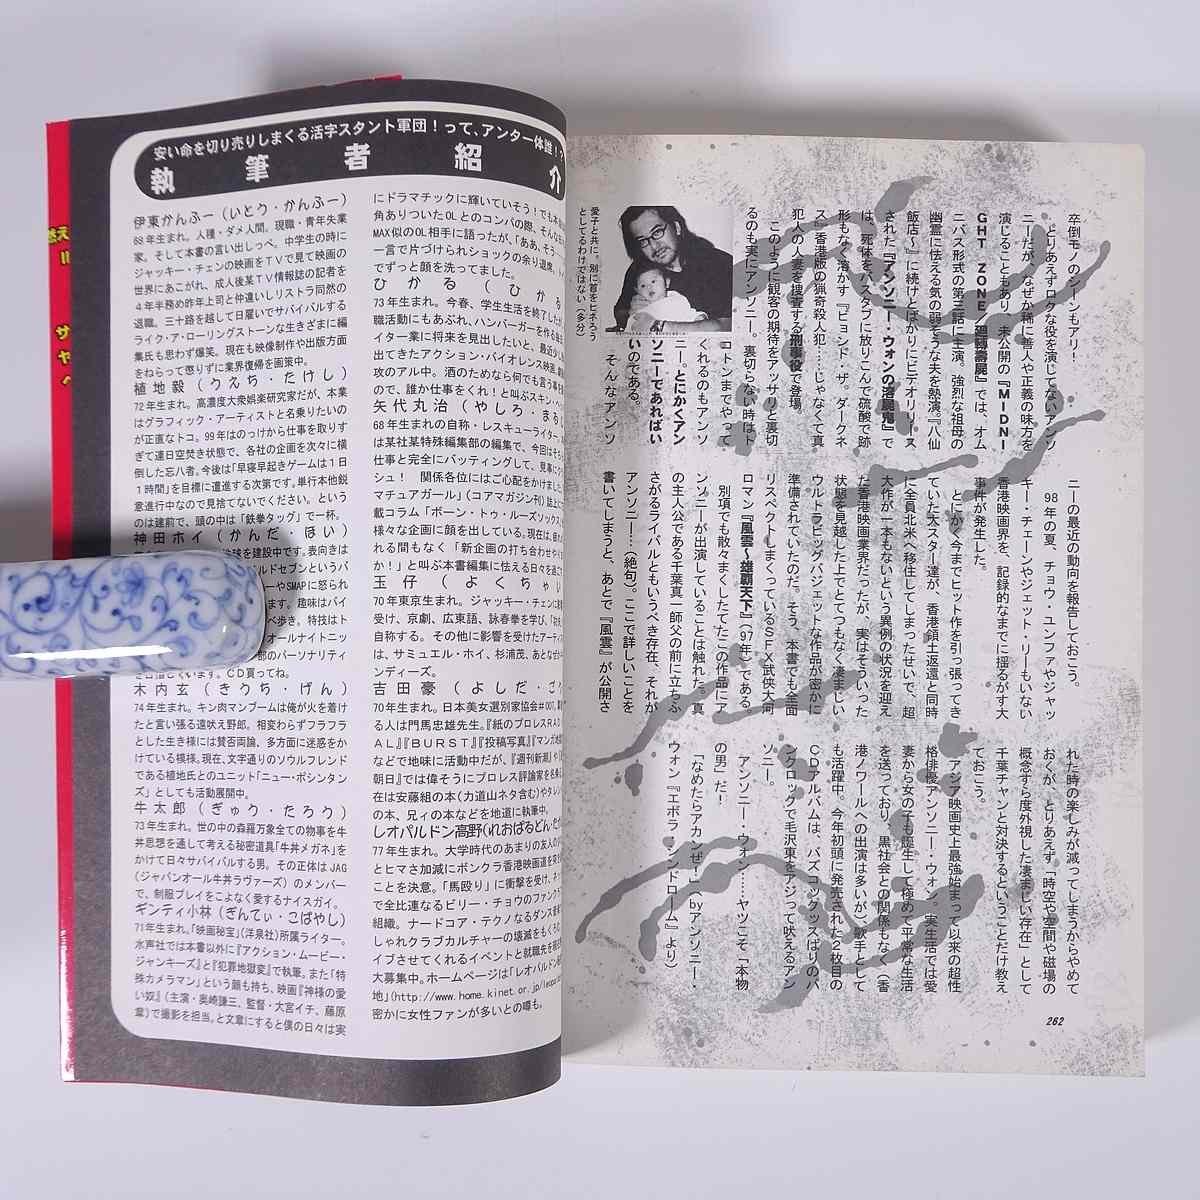 安い命を切り売りしまくる活字スタント軍団！って、アンタ一体誰！？
執筆者紹介
伊東かんふー（いとう・かんふー）
68年生まれ。人種・ダメ人間。現職・青年失業
家。そして本書の言い出しっぺ。中学生の時に
ジャッキー・チェンの映画をTVで見て映画の
世界にあこがれ、成人後某TV情報誌の記者を
4年半務め昨年上司と仲違いしリストラ同然の
退職。三十路を越して日雇いでサバイバルする
ライク・ア・ローリングストーンな生きざまに編
集氏も思わず爆笑。現在も映像制作や出版方面
をねらって懲りずに業界復帰を画策中。
植地毅（うえち・たけし）
72年生まれ。高濃度大衆娯楽研究家だが、本業
はグラフィック・アーティストと名乗りたいの
が正直なトコ。99年はのっけから仕事を取りす
ぎて連日空焚き状態で、各社の企画を次々に横
倒した忘八者。今後は「早寝早起きゲームは1日
1時間」を目標に邁進する次第です。単行本他鋭
意進行中なので見捨てないでください。という
のは建前で、頭の中は「鉄拳タッグ」で一杯。
神田ホイ（かんだ・ほい）
を建設中です。表向きは
ルドセブンというバ
ーやSMAPに怒られ
ます。趣味はバイ
べ歩き。特技はト
オールナイトニッ
部のパーソナリティ
CD買ってね。
木内玄（きうち・げん）
74年生まれ。キン肉マンブームは俺が火を着け
たと言い張る遠吠え野郎。相変わらずフラフラ
とした生き様には賛否両論、多方面に迷惑をか
けている模様。現在、文字通りのソウルフレンド
である植地氏とのユニット「ニュー・ポシンタン
ズ」としても活動展開中。
牛太郎（ぎゅう・たろう）
73年生まれ。世の中の森羅万象全ての物事を牛
丼思想を通して考える秘密道具「牛丼メガネ」を
かけて日々サバイバルする男。その正体はJAG
（ジャパンオール牛丼ラヴァーズ）のメンバー
で、制服プレイをこよなく愛するナイスガイ。
ギンティ小林（ぎんてぃ・こばやし）
71年生まれ。『映画秘宝』（洋泉社）所属ライター。
水声社では本書以外に『アクション・ムービー・
ジャンキーズ』と『犯罪地獄変』で執筆。また「特
殊カメラマン」という顔も持ち、映画『神様の愛
い奴』（主演・奥崎謙三、監督・大宮イチ、藤原
章）で撮影を担当。と文章にすると僕の日々は実
にドラマチックに輝いていそう！でも本
角ありついたOLとのコンパの際、そんな
MAX似のOL相手に語ったが、「ああ、そう
一言で片づけられショックの余り退席。
でずっと顔を洗ってました。
ひかる（ひかる
73年生まれ。今春、学生生活を終了した
職活動にもあぶれ、ハンバーガーを作る
イター業に将来を見出したいと、最近少し
出てきたアクション・バイオレンス映画
攻のアル中。酒のためなら何でも言う事
ので、誰か仕事をくれ！と叫ぶスキン・ヘ
矢代丸治（やしろ・まる
68年生まれの自称・レスキューライター。
は某社某特殊編集部の編集で、今回はそ
仕事と完全にバッティングして、見事に
シュ！ 関係各位にはご心配をかけまし
マチュアガール』（コアマガジン刊）誌上に
載コラム「ボーン・トゥ・ルーズソックス
様々な企画に顔を出している。現在は、
れる間もなく「新企画の打ち合わせや
か！」と叫ぶ本書編集に怯える日々を過
玉仔（よくちゃい
70年東京生まれ。ジャッキー・チェンに
受け、京劇、広東語、詠春拳を学び、「功
自称する。その他に影響を受けたアーティ
は、サミュエル・ホイ、杉浦茂、あとなぜか
ンディーズ。
吉田豪（よしだ・ご
70年生まれ。日本美女選別家協会#007。
る人は門馬忠雄先生。『紙のプロレスRAD
AL』『BURST』『投稿写真』『マンガ地
などで地味に活動中だが、『週刊新潮』や
朝日』では偉そうにプロレス評論家を名乗
在は安藤組の本（力道山ネタ含む）やタレン
の本、兄ィの本などを地道に執筆中。
レオパルドン高野（れおぱるどん・たか
77年生まれ。大学時代のあまりの友人の
とヒマさ加減にボンクラ香港映画道を突
ことを決意。「馬殴り」に衝撃を受け、ネ
で全比連なるビリー・チョウのファンク
組織。ナードコア・テクノなるダンス音
しゃれクラブカルチャーの壊滅をもくろ
イブさせてくれるイベントと就職先を現
大募集中。ホームページは「レオパルドン
地」（http://www.home.kinet.or.jp/leopa
密かに女性ファンが多いとの噂も。
卒倒モノのシーンもアリ！
とりあえずロクな役を演じてないアンソ
ニーだが、なぜか稀に善人や正義の味方を
演じることもあり、未公開の『MIDNI
GHT ZONE／廻轉壽屍』では、オム
ニバス形式の第三話に主演。強烈な祖母の
幽霊に怯える気の弱そうな夫を熱演。『八仙
飯店〜』に続けとばかりにビデオリリース
された『アンソニー・ウォンの溶屍鬼』で
は、死体をバスタブに放りこんで硫酸で跡
形もなく溶かす『ビヨンド・ザ・ダークネ
ス』香港版の猟奇殺人犯……じゃなくて真
犯人の人妻を捜査する刑事役で登場。
このように観客の期待をアッサリと裏切
るのも実にアンソニー。裏切らない時はト
コトンまでやって
くれるのもアンソ
ニー。とにかくアン
ソニーであればい
いのである。
そんなアンソ
愛子と共に。別に首をヒネろう
としてるわけではない（多分）
ニーの最近の動向を報告しておこう。
98年の夏、チョウ・ユンファやジャッ
キー・チェーンやジェット・リーもいない
香港映画界を、記録的なまでに揺るがす大
事件が発生した。
とにかく今までヒット作を引っ張ってき
ていた大スター達が、香港領土返還と同時
に全員北米へ移住してしまったせいで、超
大作が一本もないという異例の状況を迎え
た香港映画業界だったが、実はそういった
状態を見越した上でとてつもなく凄まじい
ウルトラビッグバジェットな作品が密かに
準備されていたのだ。そう、本書でも全面
リスペクトしまくっているSFX武侠大河
ロマン『風雲〜雄覇天下』（97年）である。
別項でも散々まくしたてたこの作品にア
ンソニーが出演していることは触れた。真
の主人公である千葉真一師父の前に立ちふ
さがるライバルともいうべき存在、それが
アンソニー……（絶句）。ここで詳しいことを
書いてしまうと、あとで『風雲』が公開さ
れた時の楽しみが減ってしまうからやめて
おくが、とりあえず「時空や空間や磁場の
概念すら度外視した凄まじい存在」として
千葉チャンと対決するということだけ教え
ておこう。
アジア映画史上最強始まって以来の超性
格俳優アンソニー・ウォン。実生活では愛
妻から女の子も誕生して極めて平常な生活
を送っており、黒社会との関係もなく（香
港ノワールへの出演は多いが）、歌手として
も活躍中。今年初頭に発売された2枚目の
CDアルバムは、バズコックスばりのパ
ンクロックで毛沢東をアジって吠えるアン
ソニー。
アンソニー・ウォン……ヤツこそ「本物
の男」だ！
「なめたらアカンぜ！」（byアンソニー・
ウォン『エボラ・シンドローム』より）
262